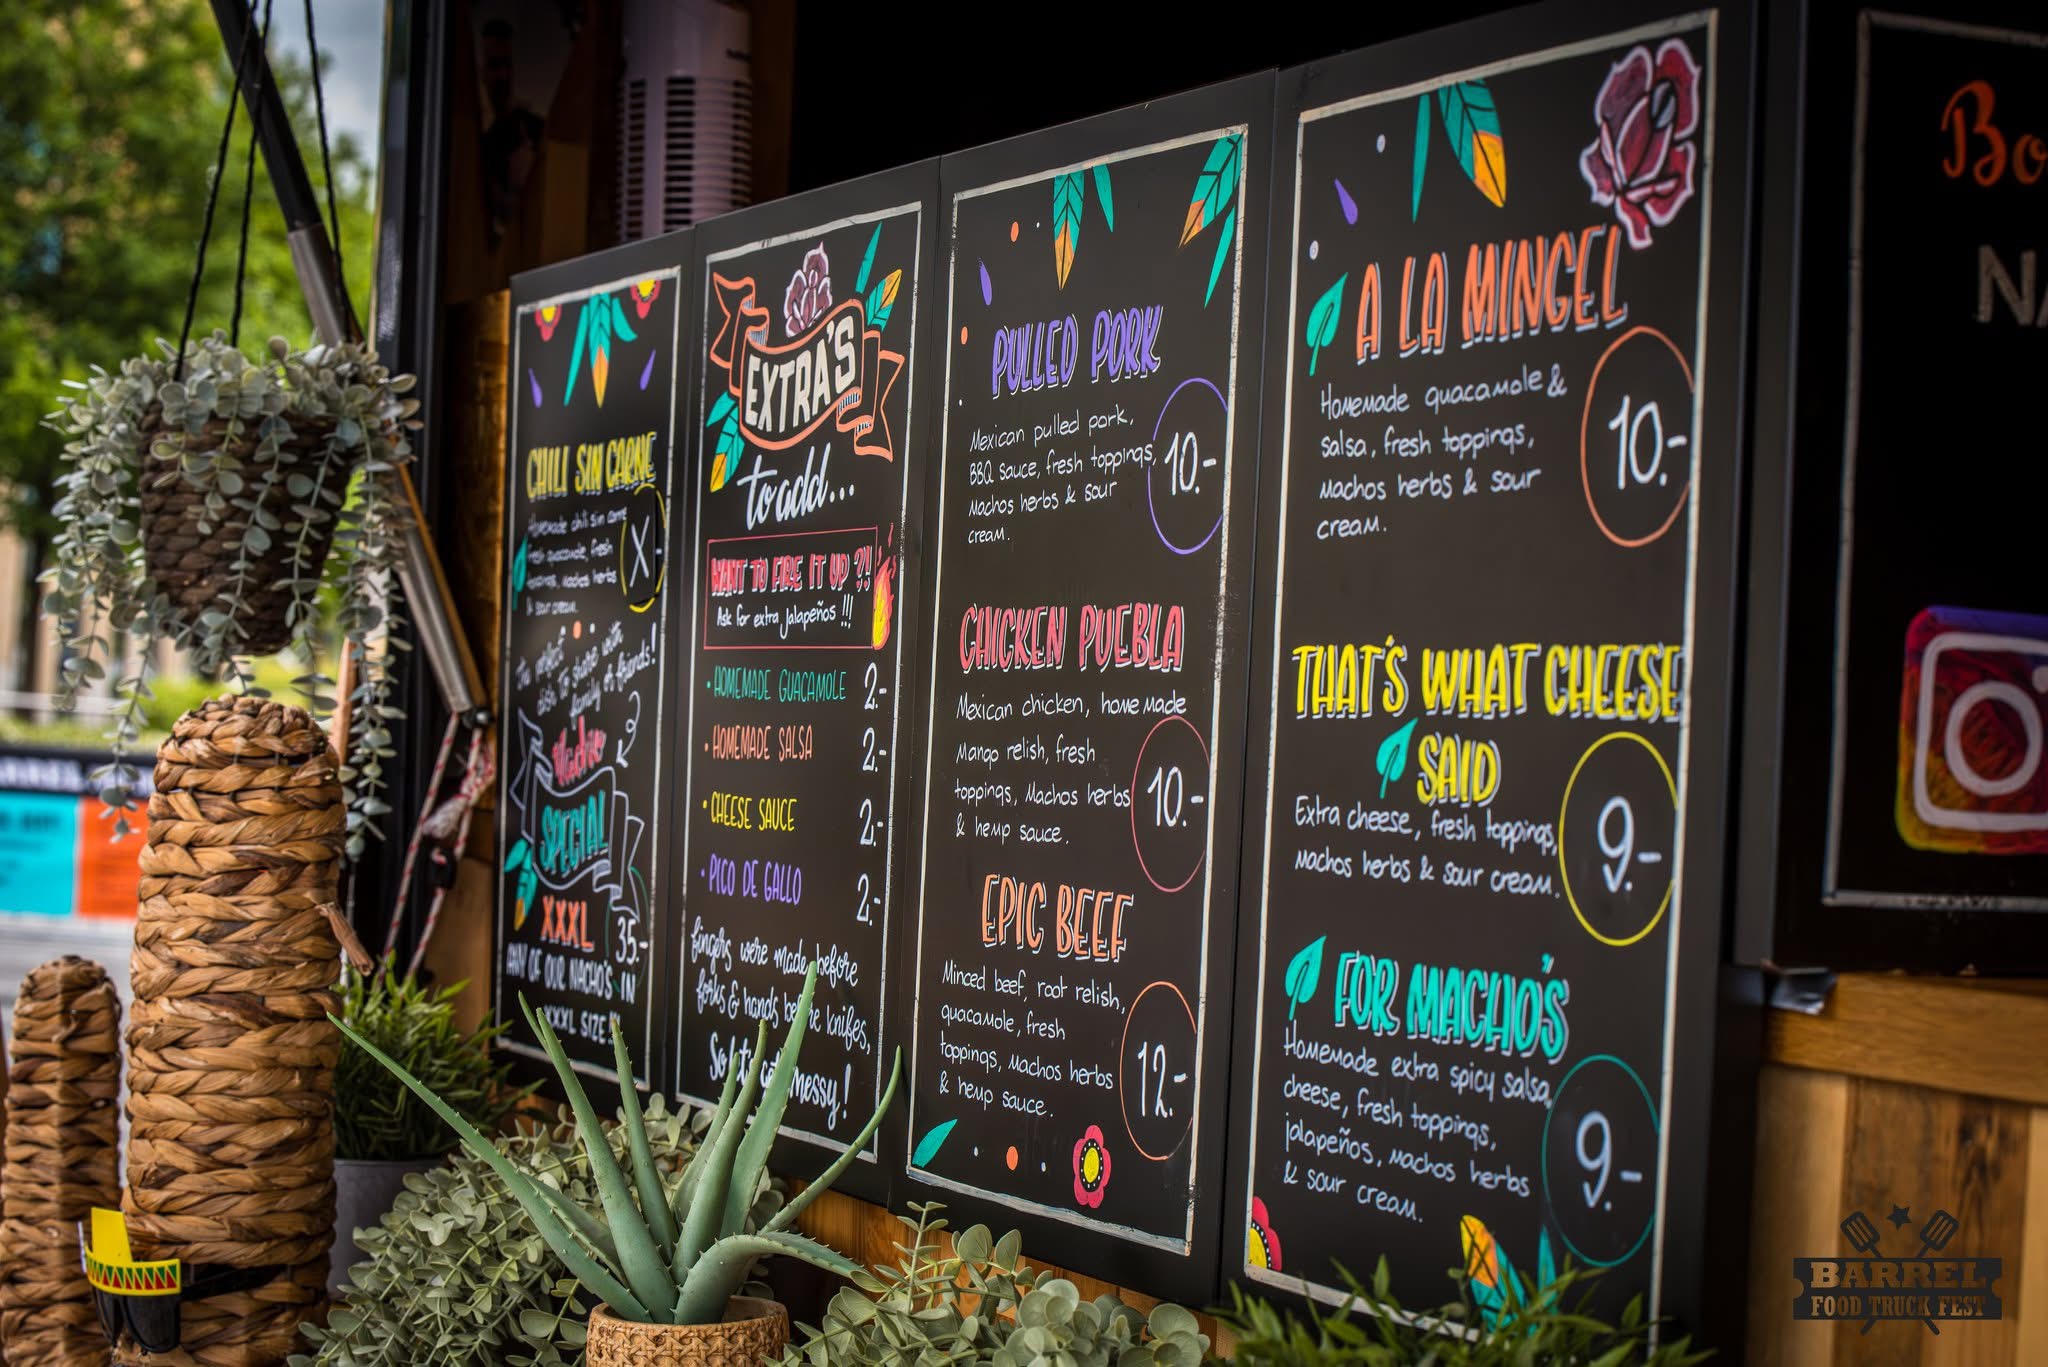 CHILI SIN CARNE
Homemade chili sin carne
fresh guacamole, fresh
toppings, Machos herbs
& sour cream.
X-
The perfect
dish to share with
family of friends!
Macho
SPECIAL
XXXL
35-
ANY OF OUR NACHO'S IN
XXXL SIZE !!
EXTRA'S
to add...
WANT TO FIRE IT UP ?!
Ask for extra Jalapeños !!!
• HOMEMADE GUACAMOLE 2.-
• HOMEMADE SALSA 2.-
• CHEESE SAUCE 2.-
• PICO DE GALLO 2.-
fingers were made before
forks & hands before knifes,
So let's get messy!
PULLED PORK
Mexican pulled pork,
BBQ sauce, fresh toppings,
Machos herbs & sour
cream.
10.-
CHICKEN PUEBLA
Mexican chicken, home made
Mango relish, fresh
toppings, Machos herbs
& hemp sauce.
10.-
EPIC BEEF
Minced beef, root relish,
guacamole, fresh
toppings, Machos herbs
& hemp sauce.
12.-
A LA MINGEL
Homemade guacamole &
salsa, fresh toppings,
Machos herbs & sour
cream.
10.-
THAT'S WHAT CHEESE
SAID
Extra cheese, fresh toppings,
Machos herbs & sour cream.
9.-
FOR MACHO'S
Homemade extra spicy salsa,
cheese, fresh toppings,
jalapeños, Machos herbs
& sour cream.
9.-
Bo
NA
BARREL
FOOD TRUCK FEST